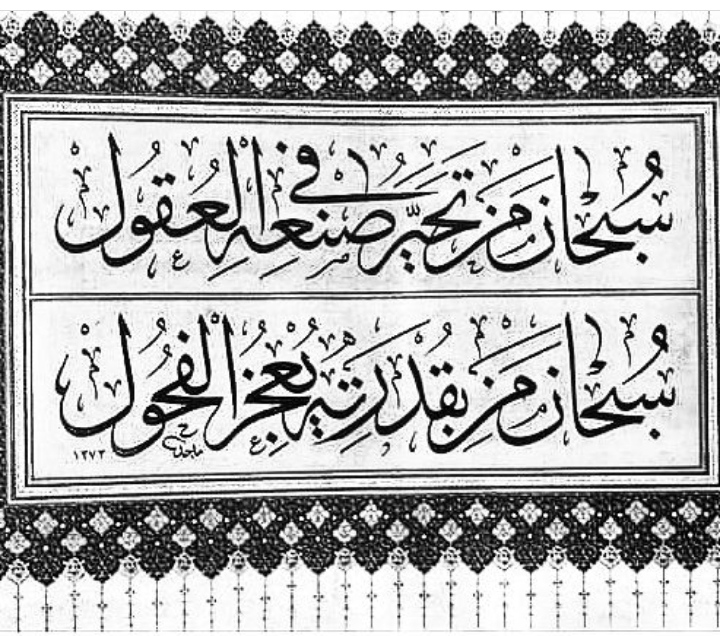 سُبْحَانَ مَنْ تَحَيَّرَ فِي صُنْعِهِ الْعُقُولُ
سُبْحَانَ مَنْ بِقُدْرَتِهِ يَعْجِزُ الْفُحُولُ
ماجد ١٣٧٣